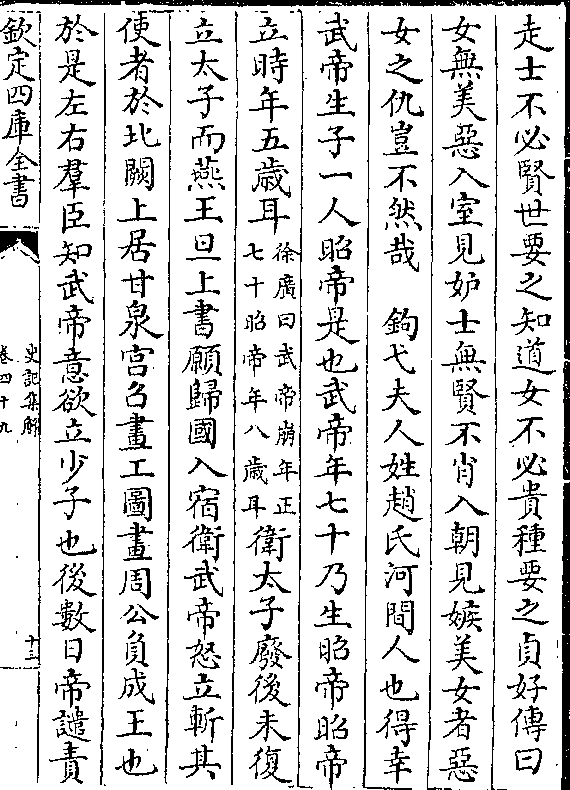 走士不必賢世要之知道女不必貴種要之貞好傳曰
女無美惡入室見妒士無賢不肖入朝見嫉美女者惡
女之仇豈不然哉　鉤弋夫人姓趙氏河間人也得幸
武帝生子一人昭帝是也武帝年七十乃生昭帝昭帝
立時年五歲耳徐廣曰武帝崩年正七十昭帝年八歲耳衛太子廢後未復
立太子而燕王旦上書願歸國入宿衛武帝怒立斬其
使者於北闕上居甘泉宮召畫工圖畫周公負成王也
於是左右羣臣知武帝意欲立少子也後數日帝譴責
欽定四庫全書
史記集解
卷四十九
十三